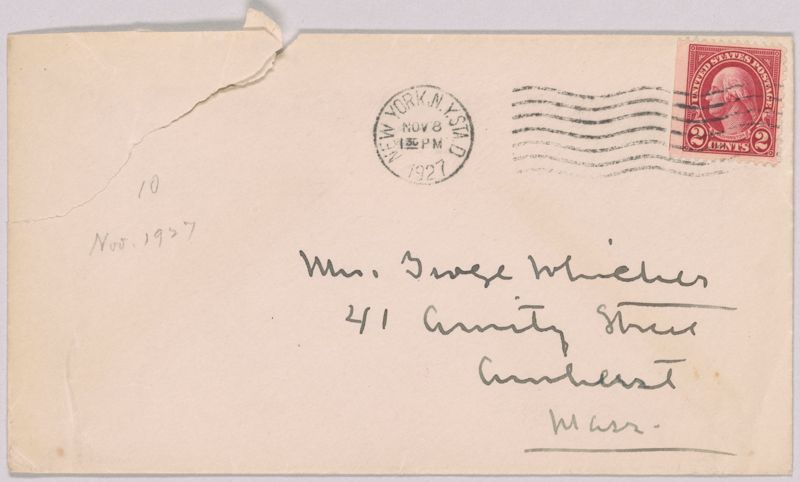 NEW YORK, N.Y. STA. D
NOV 8
1 30 PM
1927
UNITED STATES POSTAGE
2 CENTS 2
10
Nov. 1927
Mrs. George Whicher
41 Amity Street
Amherst
Mass.